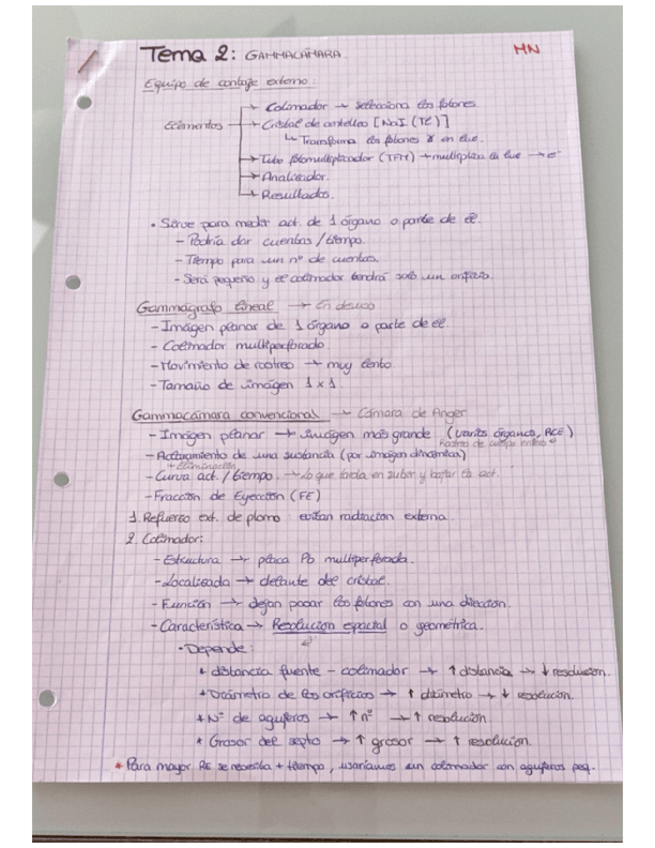 Tema 2: GAMMACÁMARA. MN
Equipo de contaje externo:
Elementos → Colimador → selecciona los fotones.
→ Cristal de centelleo [NaI (Tl)]
↳ Transforma los fotones γ en luz.
→ Tubo fotomultiplicador (TFM) → multiplica la luz → e⁻
→ Analizador.
→ Resultados.
• Sirve para medir act. de 1 órgano o parte de él.
- Podría dar cuentas / tiempo.
- Tiempo para un nº de cuentas.
- Será pequeño y el colimador tendrá solo un orificio.
Gammágrafo lineal → En desuso
- Imágen planar de 1 órgano o parte de él.
- Colimador multiperforado.
- Movimiento de rastreo → muy lento.
- Tamaño de imágen 1 x 1.
Gammacámara convencional → Cámara de Anger
- Imágen planar → imágen más grande (varios órganos, RCE)
Rastreo de cuerpo entero
- Aclaramiento de una sustancia (por imagen dinámica)
+ Eliminación
- Curva act. / tiempo. → lo que tarda en subir y bajar la act.
- Fracción de Eyección (FE)
1. Refuerzo ext. de plomo: evitan radiación externa.
2. Colimador:
- Estructura → placa Pb multiperforada.
- Localizada → delante del cristal.
- Función → dejan pasar los fotones con una dirección.
- Característica → Resolución espacial o geométrica.
• Depende:
* distancia fuente - colimador → ↑ distancia → ↓ resolución.
* Diámetro de los orificios → ↑ diámetro → ↓ resolución.
* Nº de agujeros → ↑ nº → ↑ resolución
* Grosor del septo → ↑ grosor → ↑ resolución.
* Para mayor RE se necesita + tiempo, usaríamos un colimador con agujeros peq.